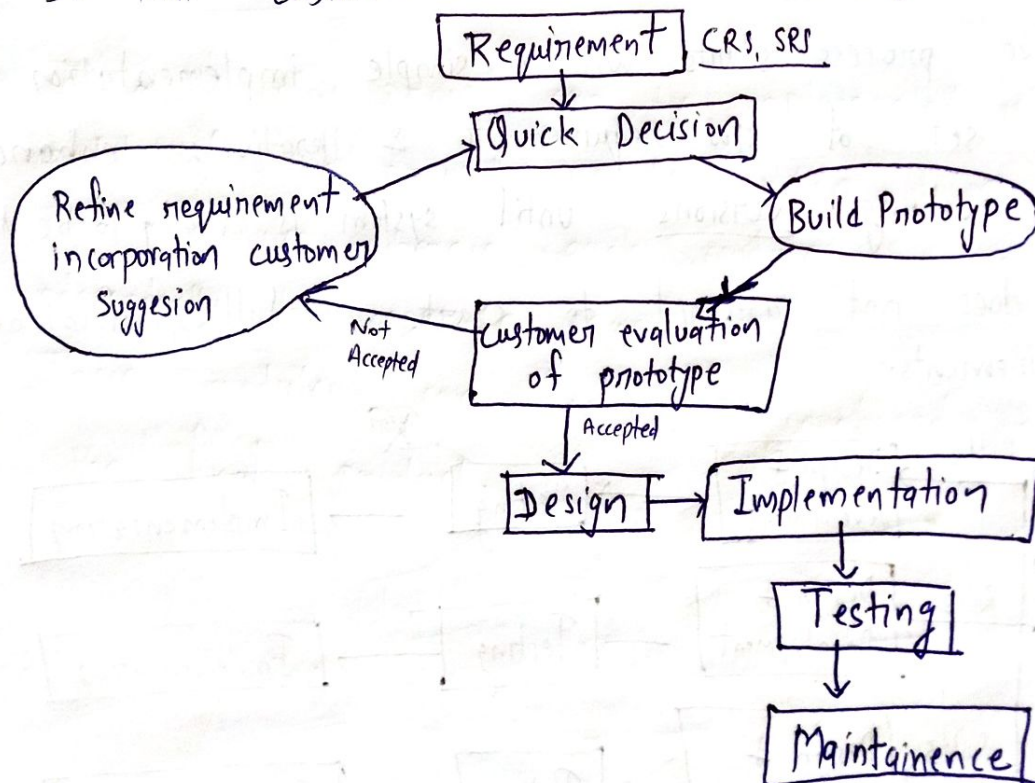 Requirement CRS, SRS
Quick Decision
Build Prototype
Refine requirement
incorporation customer
suggesion
Not
Accepted
customer evaluation
of prototype
Accepted
Design
Implementation
Testing
Maintainence